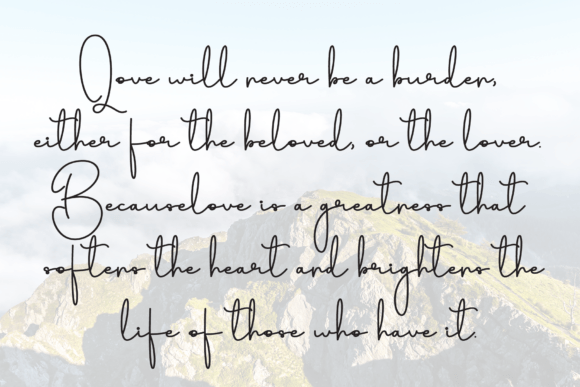 Love will never be a burden,
either for the beloved, or the lover.
Becauselove is a greatness that
softens the heart and brightens the
life of those who have it.